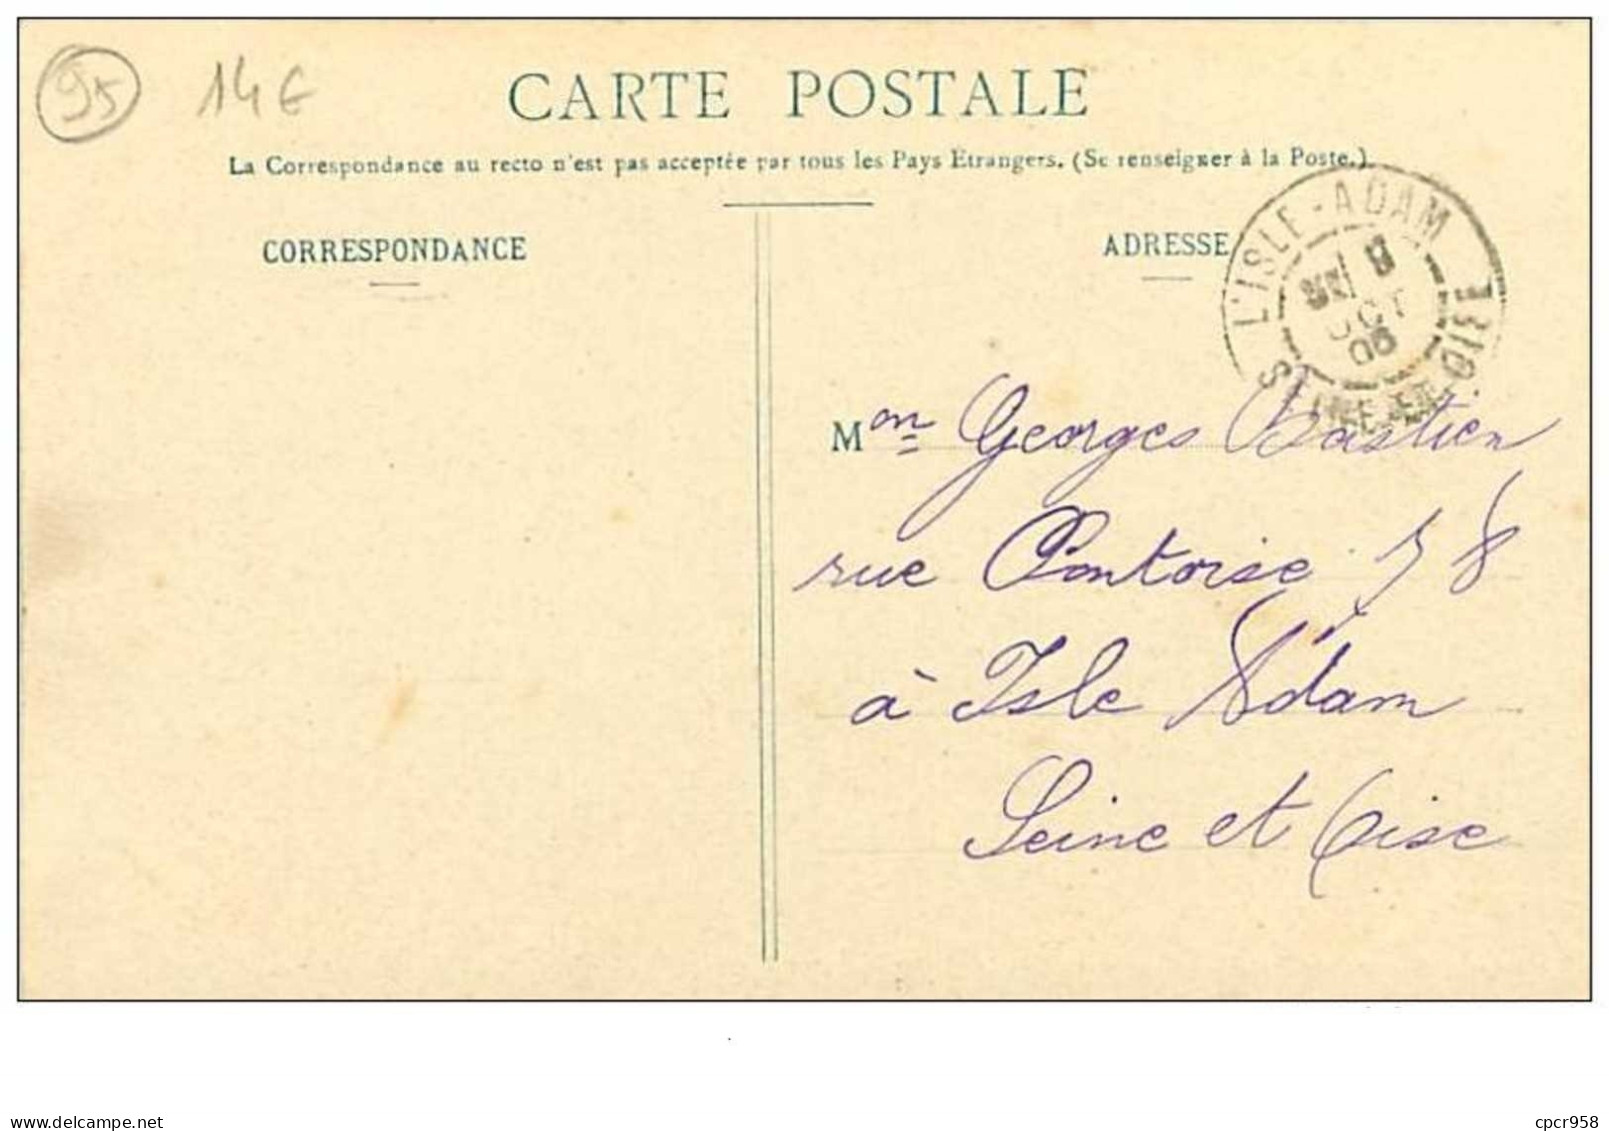 95 14€
CARTE POSTALE
La Correspondance au recto n'est pas acceptée par tous les Pays Etrangers. (Se renseigner à la Poste.)
CORRESPONDANCE
ADRESSE
L'ISLE-ADAM
OCT
06
SEINE-ET-OISE
Mon Georges Bastien
rue Pontoise 58
à Isle Adam
Seine et Oise
My Delcampe.net
cpcr958